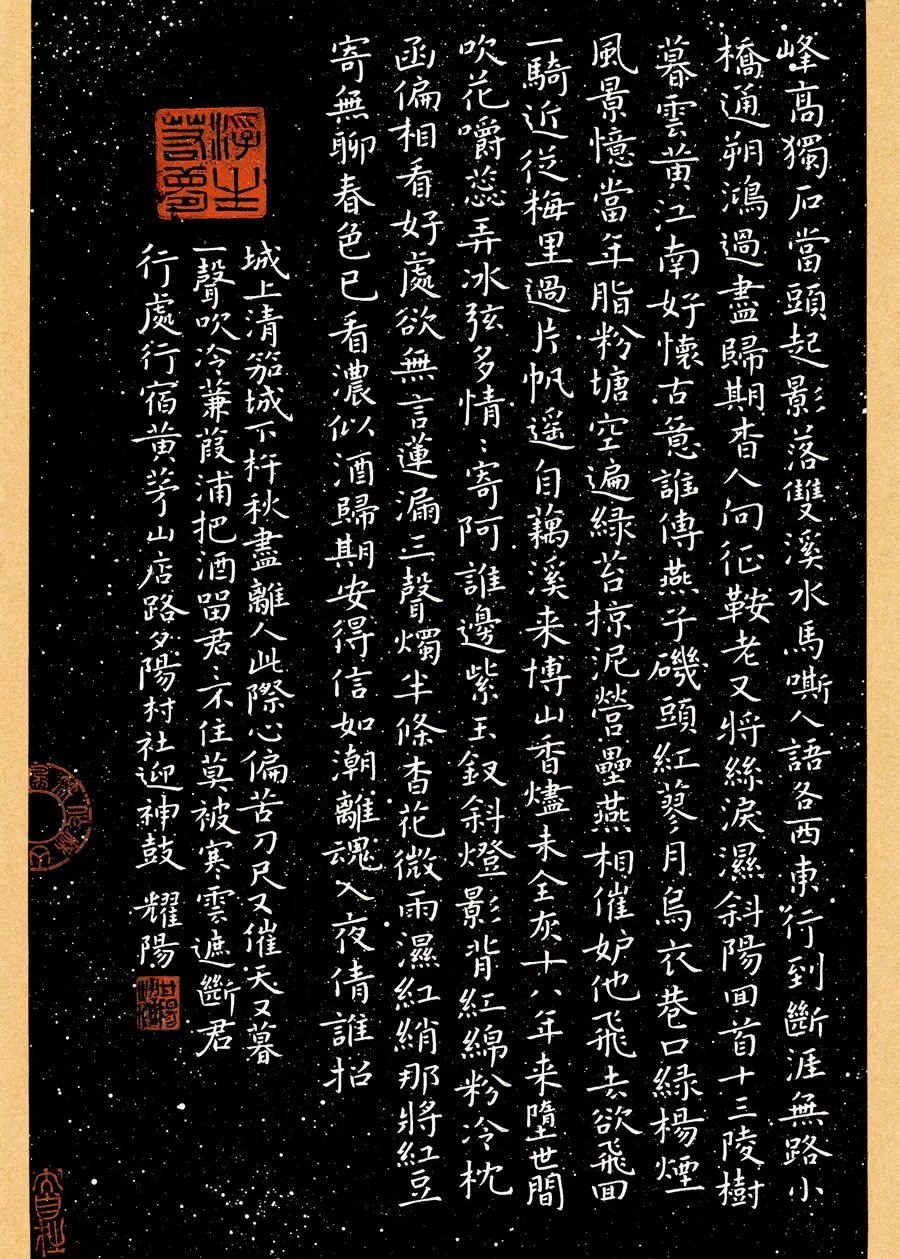 峰高獨石當頭起影落雙溪水馬嘶人語各西東行到斷涯無路小
橋通朔鴻過盡歸期杳人向征鞍老又將絲淚濕斜陽囬首十三陵樹
暮雲黄江南好懷古意誰傳燕子磯頭紅蓼月烏衣巷口綠楊煙
風景憶當年脂粉塘空遍綠苔掠泥營壘燕相催妒他飛去欲飛囬
一騎近從梅里過片帆遥自藕溪来博山香燼未全灰十八年来墮世間
吹花嚼蕊弄冰弦多情〻寄阿誰邊紫玉釵斜燈影背紅綿粉冷枕
函偏相看好處欲無言蓮漏三聲燭半條杏花微雨濕紅綃那將紅豆
寄無聊春色已看濃似酒歸期安得信如潮離魂入夜倩誰招
浮生若夢
城上清笳城下杵秋盡離人此際心偏苦刀尺又催天又暮
一聲吹冷蒹葭浦把酒留君〻不住莫被寒雲遮斷君
行處行宿黄茅山店路夕陽村社迎神鼓 耀陽